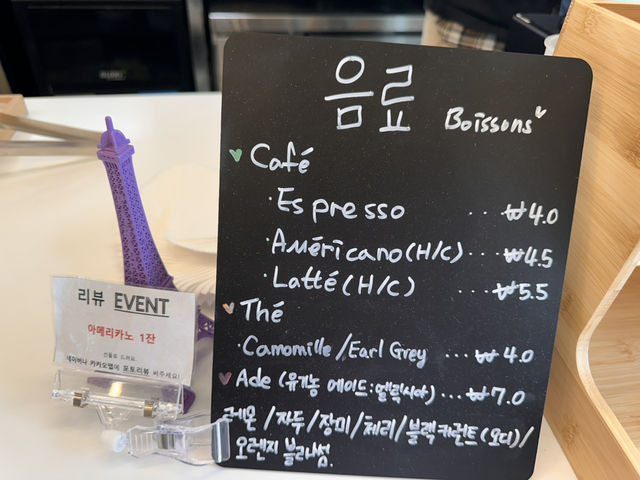 음료 Boissons
Café
· Espresso ... ₩4.0
· Américano (H/C) ... ₩4.5
· Latté (H/C) ... ₩5.5
Thé
Camomille / Earl Grey ... ₩4.0
Ade (유기농 에이드:엘릭시아) ... ₩7.0
레몬 / 자두 / 장미 / 체리 / 블랙커런트(오디) /
오렌지 블라썸.
리뷰 EVENT
아메리카노 1잔
선물로 드려요.
네이버나 카카오맵에 포토리뷰 써주세요!